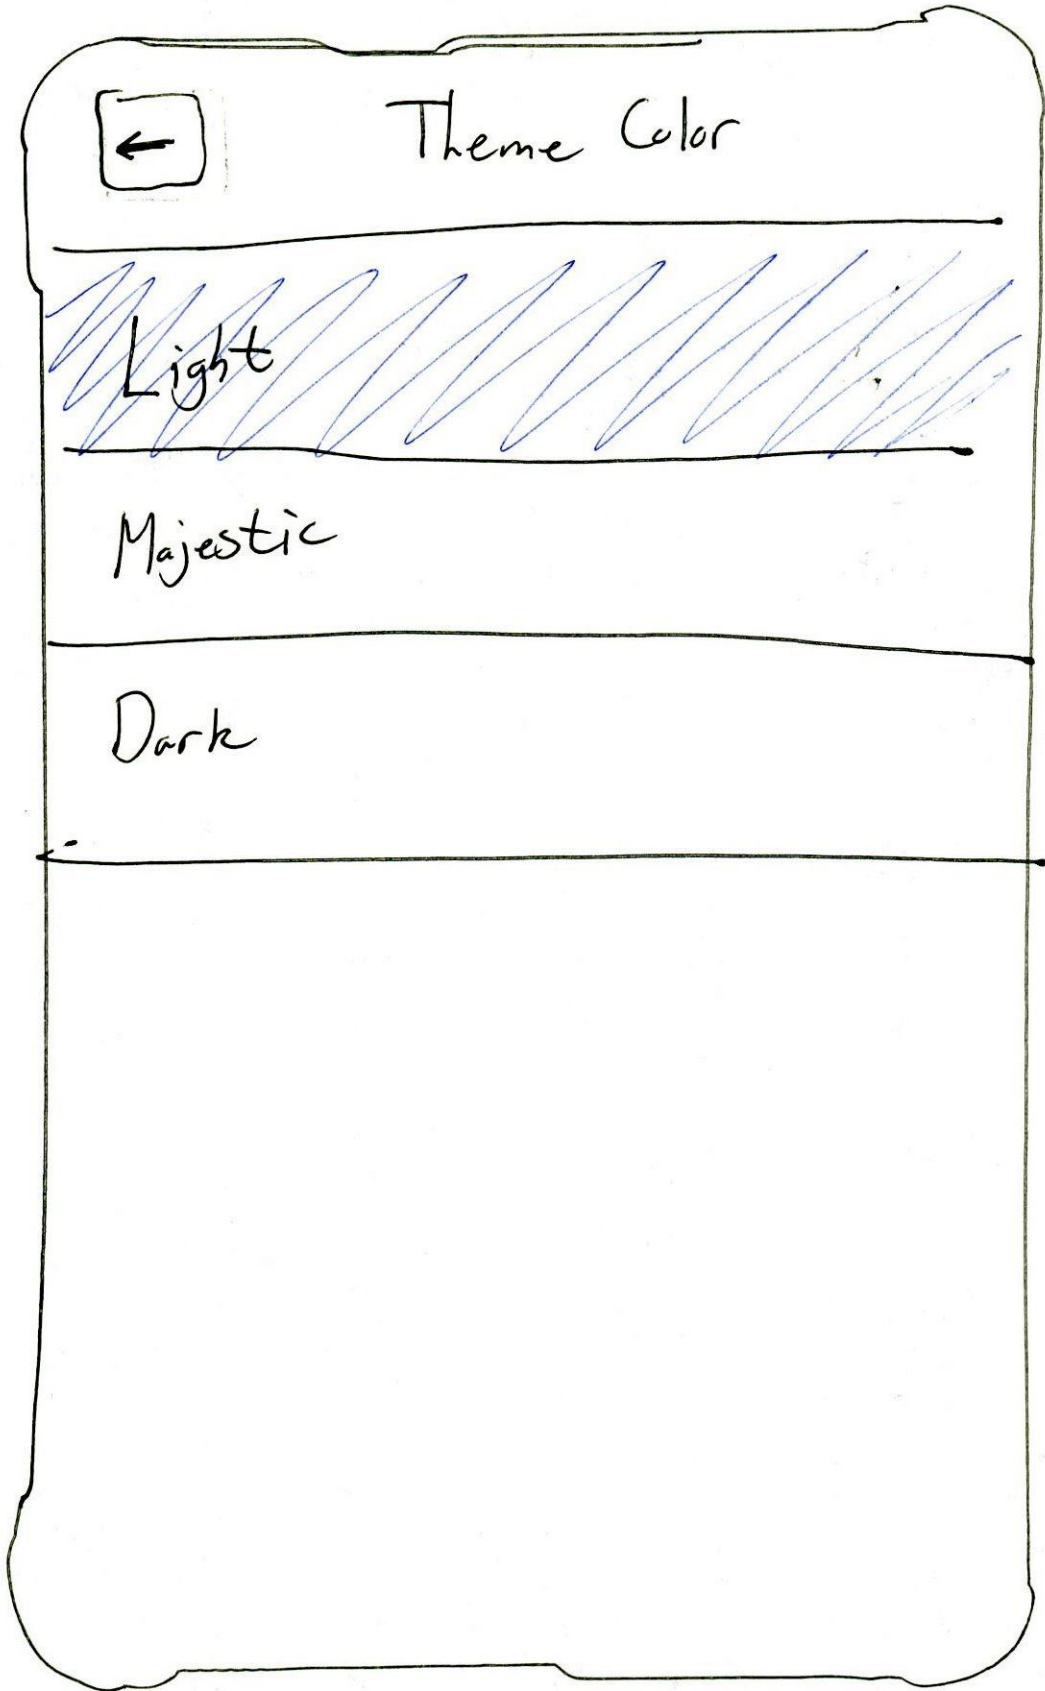 Theme Color
Light
Majestic
Dark